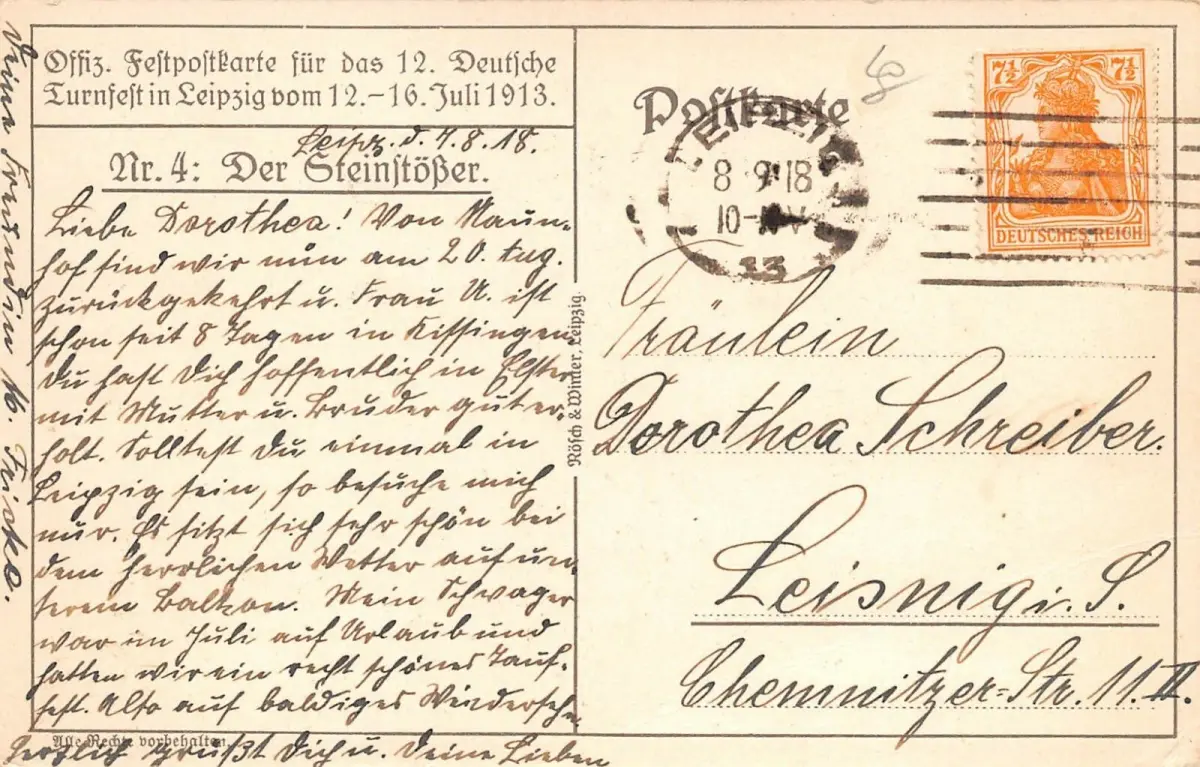 Offiz. Festpostkarte für das 12. Deutsche
Turnfest in Leipzig vom 12.-16. Juli 1913.
Leipz. d. 7.8.18.
Nr. 4: Der Steinstößer.
Liebe Dorothea! Von Naun-
hof sind wir nun am 20. Aug.
zurückgekehrt u. Frau U. ist
schon seit 8 Tagen in Kissingen.
Du hast Dich hoffentlich in Elster
mit Mutter u. Bruder gut er-
holt. Solltest Du einmal in
Leipzig sein, so besuche mich
nur. Es sitzt sich sehr schön bei
dem herrlichen Wetter auf un-
serem Balkon. Mein Schwager
war im Juli auf Urlaub und
hatten wir ein recht schönes Tauf-
fest. Also auf baldiges Wiederseh.
Herzlich grüßt Dich u. Deine Lieben
Deine Freundin M.
Alle Rechte vorbehalten
Rösch & Winter, Leipzig.
Postkarte
LEIPZIG
8 9 18
10-
13
7½ 7½
DEUTSCHES REICH
Fräulein
Dorothea Schreiber.
Leisnig i. S.
Chemnitzer-Str. 11. II.